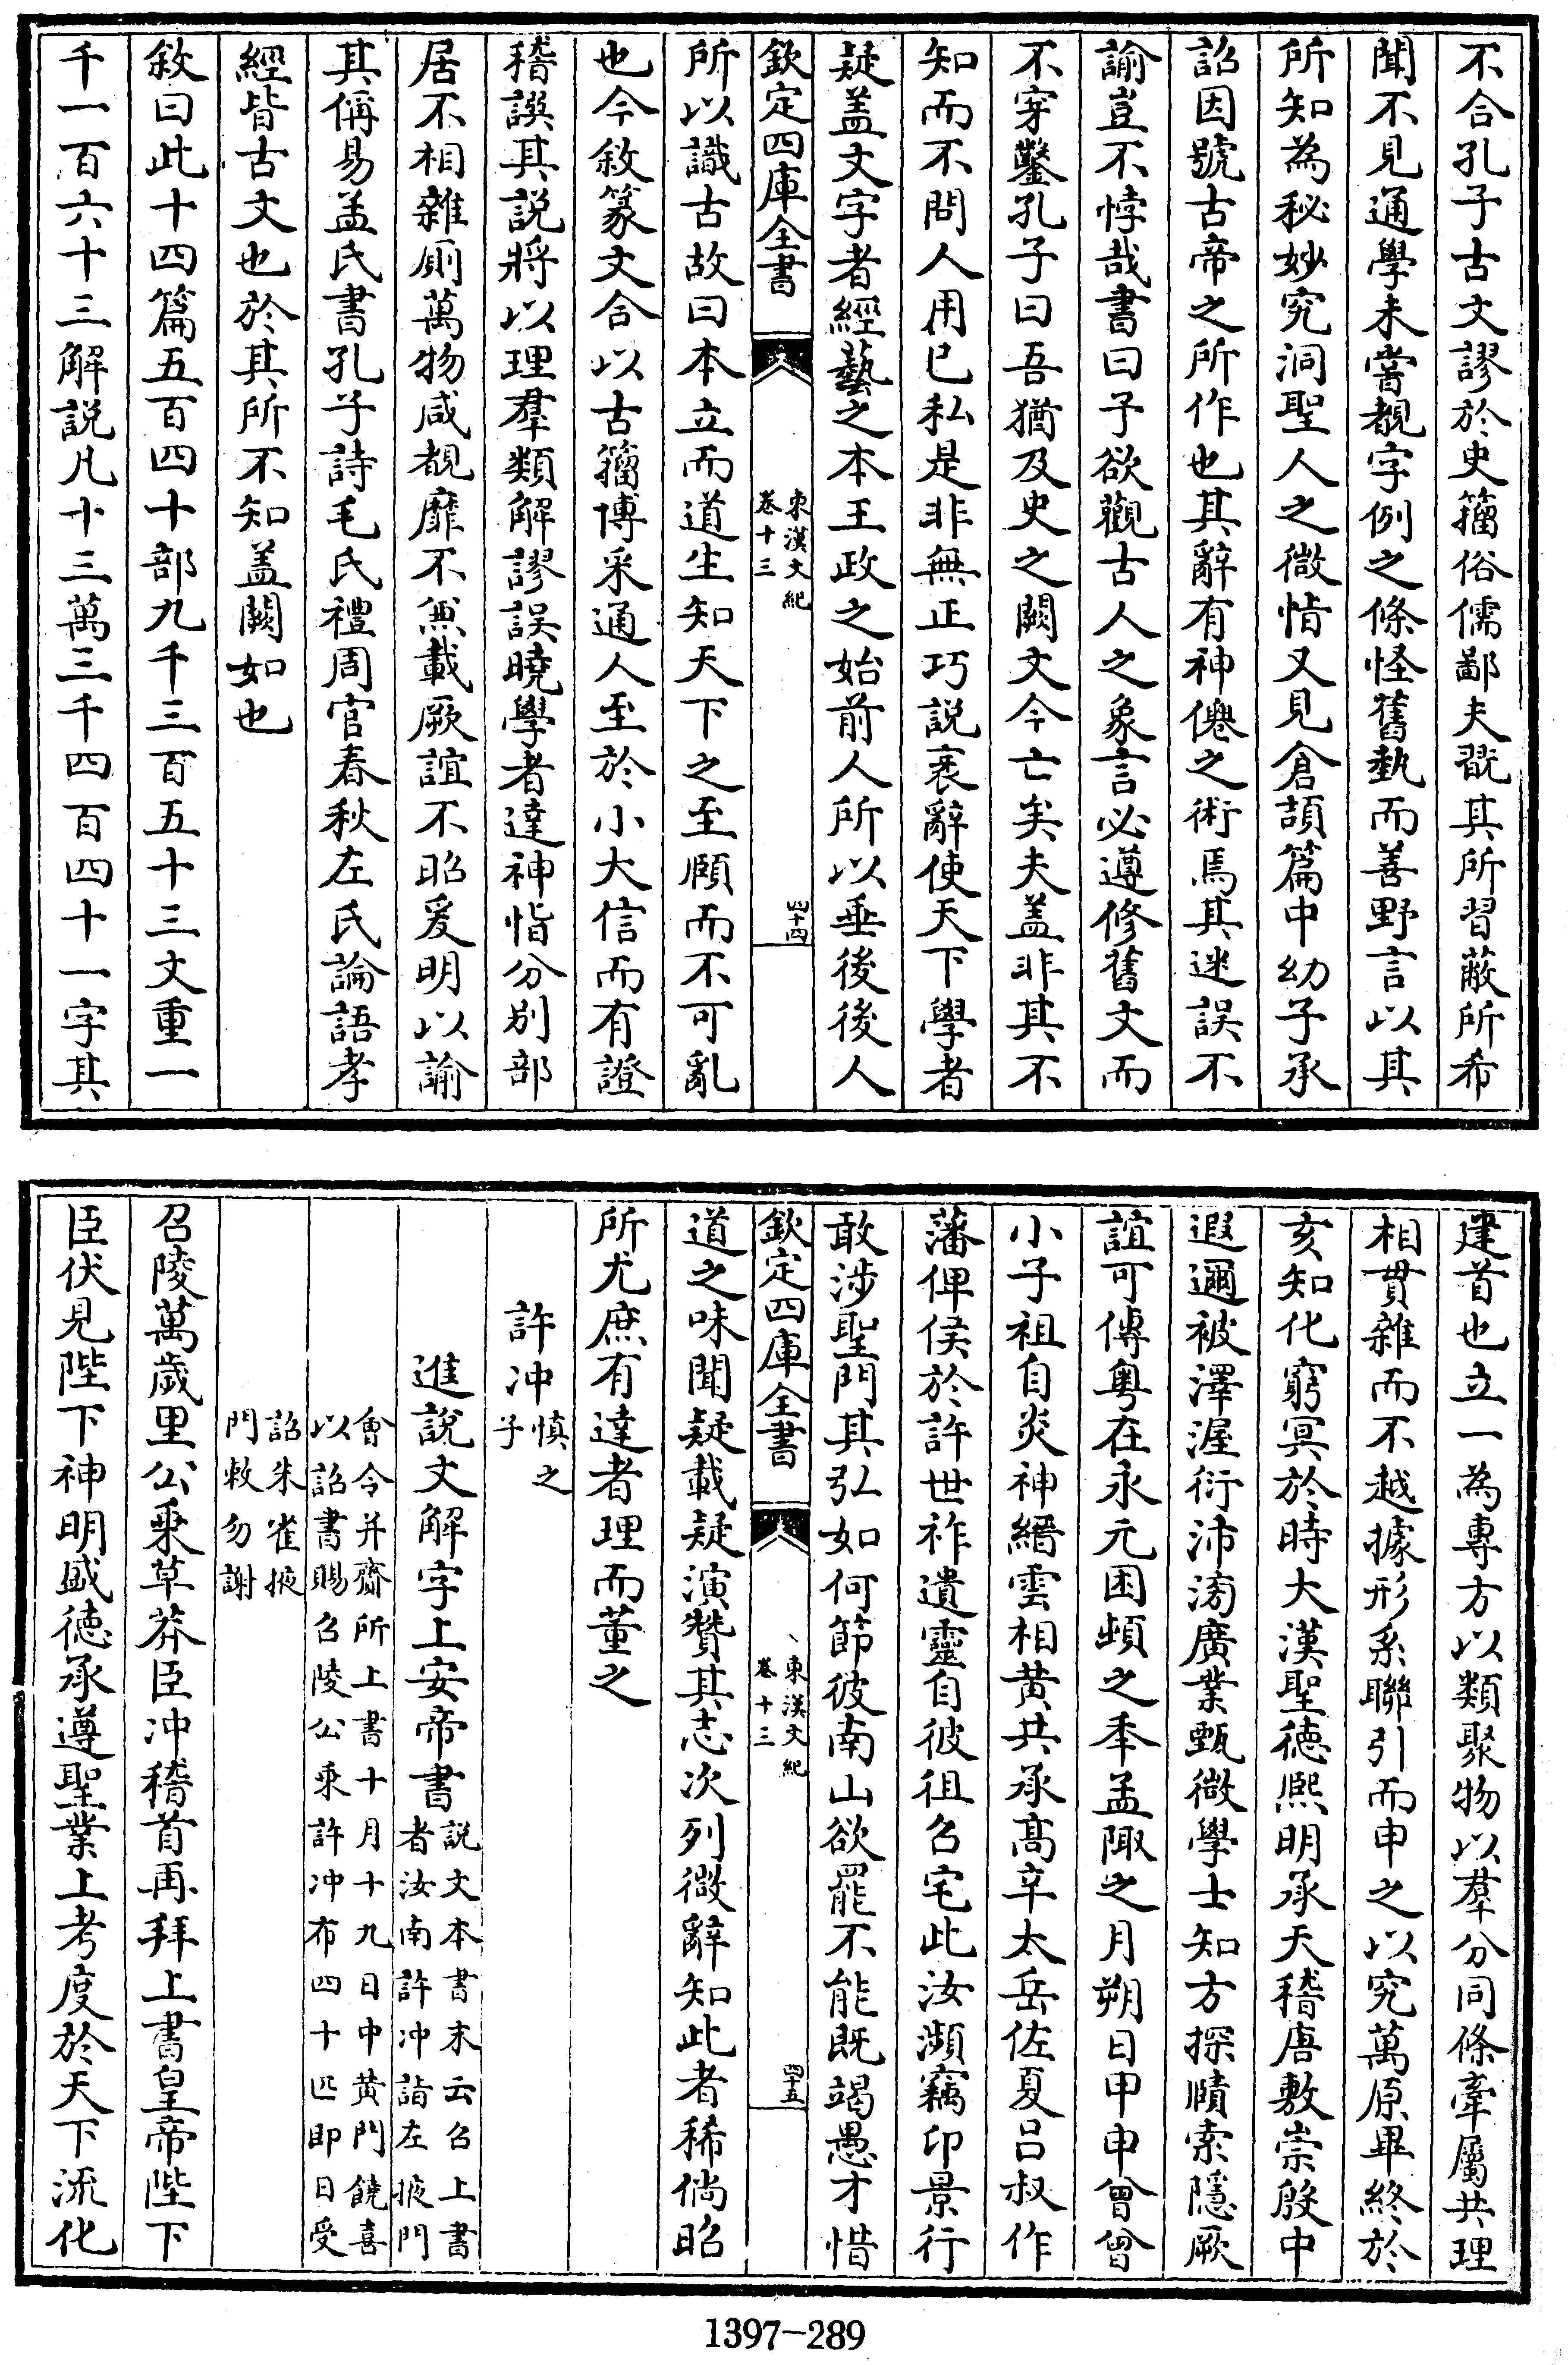 不合孔子古文謬於史籀俗儒鄙夫翫其所習蔽所希
聞不見通學未嘗覩字例之條怪舊埶而善野言以其
所知為秘妙究洞聖人之微恉又見倉頡篇中幼子承
詔因號古帝之所作也其辭有神僊之術焉其迷誤不
諭豈不悖哉書曰予欲觀古人之象言必遵修舊文而
不穿鑿孔子曰吾猶及史之闕文今亡矣夫盖非其不
知而不問人用己私是非無正巧説衺辭使天下學者
疑盖文字者經藝之本王政之始前人所以垂後後人
欽定四庫全書
東漢文紀
卷十三
四十四
所以識古故曰本立而道生知天下之至賾而不可亂
也今敘篆文合以古籀博采通人至於小大信而有證
稽譔其説將以理羣類解謬誤曉學者達神恉分别部
居不相雜厠萬物咸覩靡不兼載厥誼不昭爰明以諭
其偁易孟氏書孔子詩毛氏禮周官春秋左氏論語孝
經皆古文也於其所不知盖闕如也
敘曰此十四篇五百四十部九千三百五十三文重一
千一百六十三解説凡十三萬三千四百四十一字其
建首也立一為專方以類聚物以羣分同條牽屬共理
相貫雜而不越據形系聯引而申之以究萬原畢終於
亥知化窮冥於時大漢聖德熙明承天稽唐敷崇殷中
遐邇被澤渥衍沛滂廣業甄微學士知方探賾索隱厥
誼可傳粤在永元困頓之秊孟陬之月朔日甲申曾曾
小子祖自炎神縉雲相黄共承高辛太岳佐夏吕叔作
藩俾侯於許世祚遺靈自彼徂召宅此汝瀕竊卬景行
敢涉聖門其弘如何節彼南山欲罷不能既竭愚才惜
欽定四庫全書
東漢文紀
卷十三
四十五
道之味聞疑載疑演贊其志次列微辭知此者稀倘昭
所尤庶有達者理而董之
許冲慎之
子
進說文解字上安帝書說文本書末云召上書
者汝南許冲詣左掖門
會令并齎所上書十月十九日中黄門饒喜
以詔書賜召陵公乘許冲布四十匹即日受
詔朱雀掖
門敕勿謝
召陵萬歲里公乘草莽臣冲稽首再拜上書皇帝陛下
臣伏見陛下神明盛德承遵聖業上考度於天下流化
1397-289